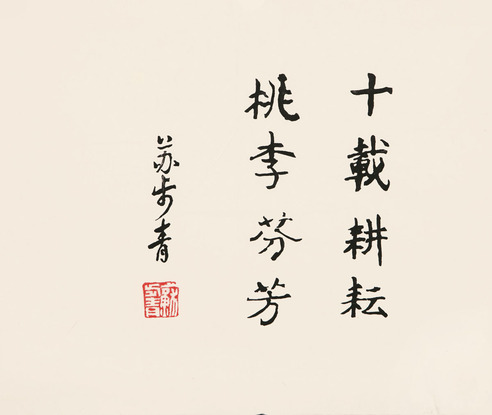 十載耕耘
桃李芬芳
苏步青